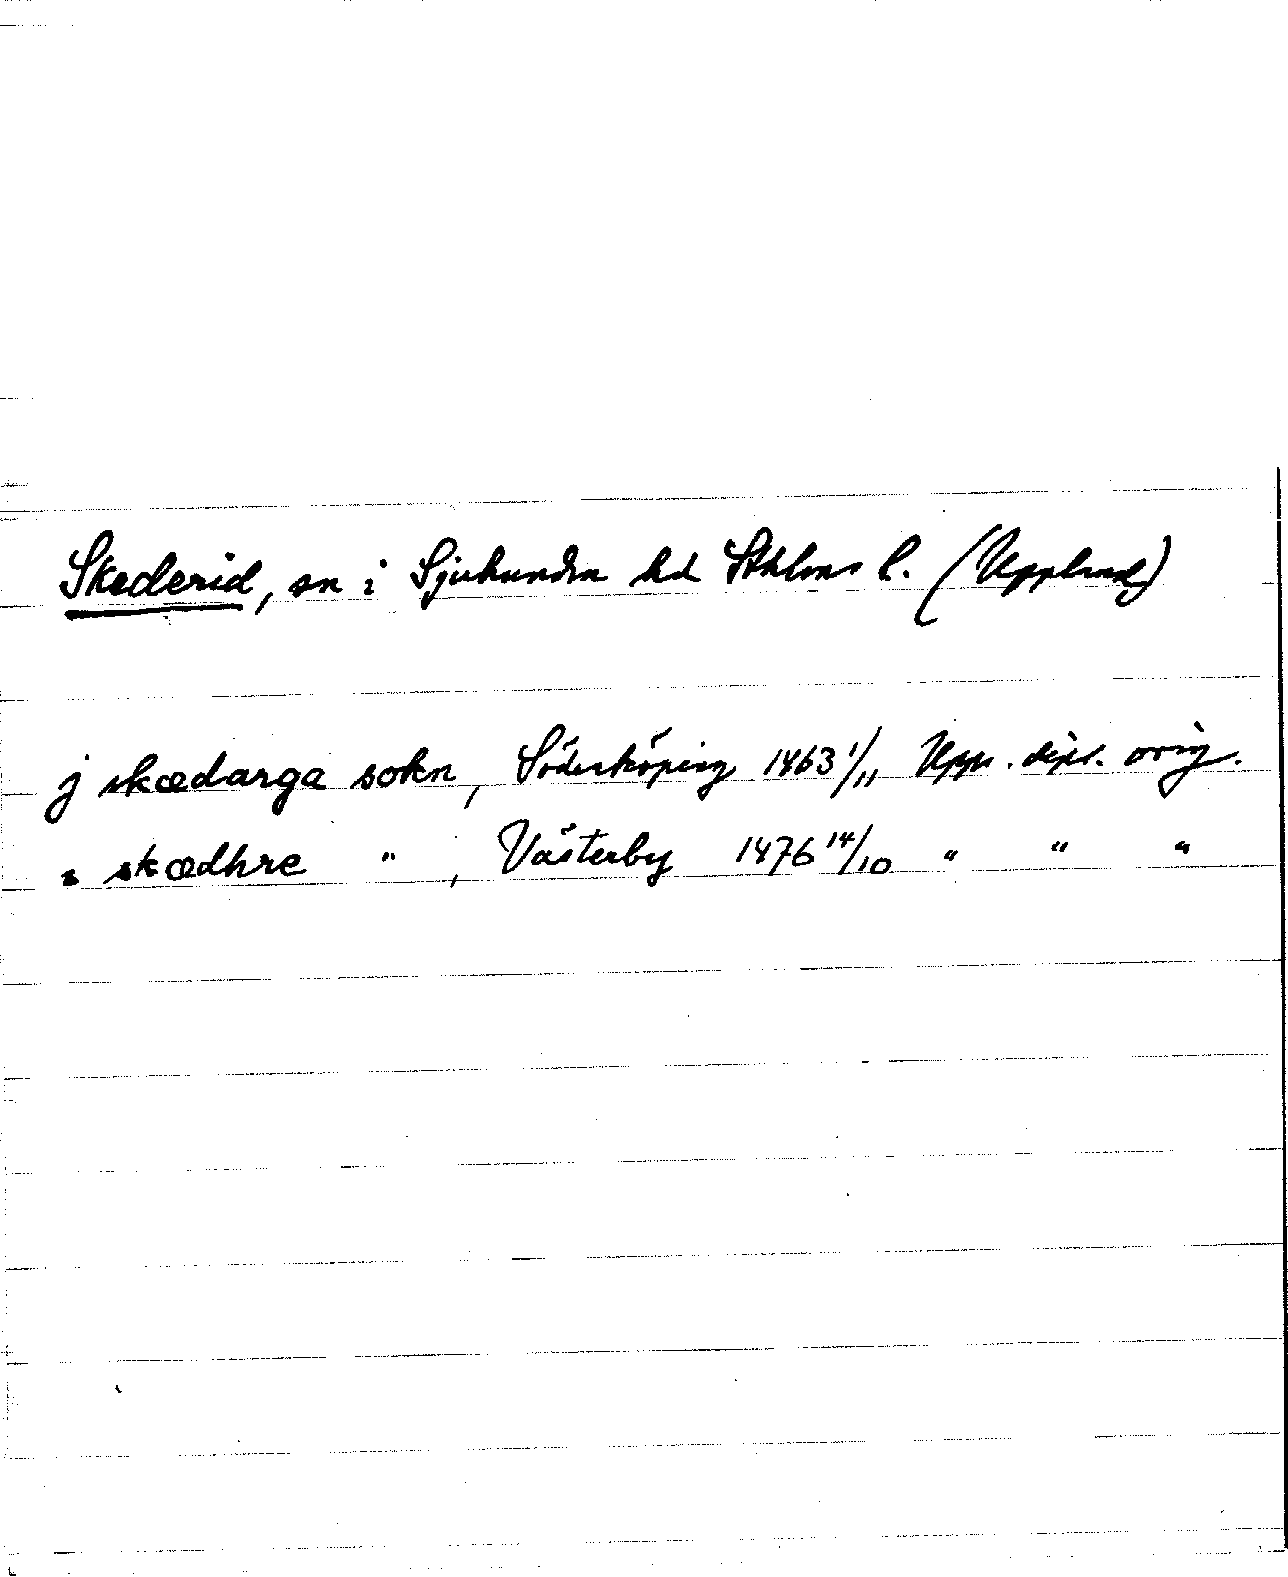 Skederid, sn i Sjuhundra hd Sthlms l. (Uppland)
j skædarga sokn, Söderköping 1463 1/11 Upps. dipl. orig.
i skædhre " , Västerby 1476 14/10 " " "